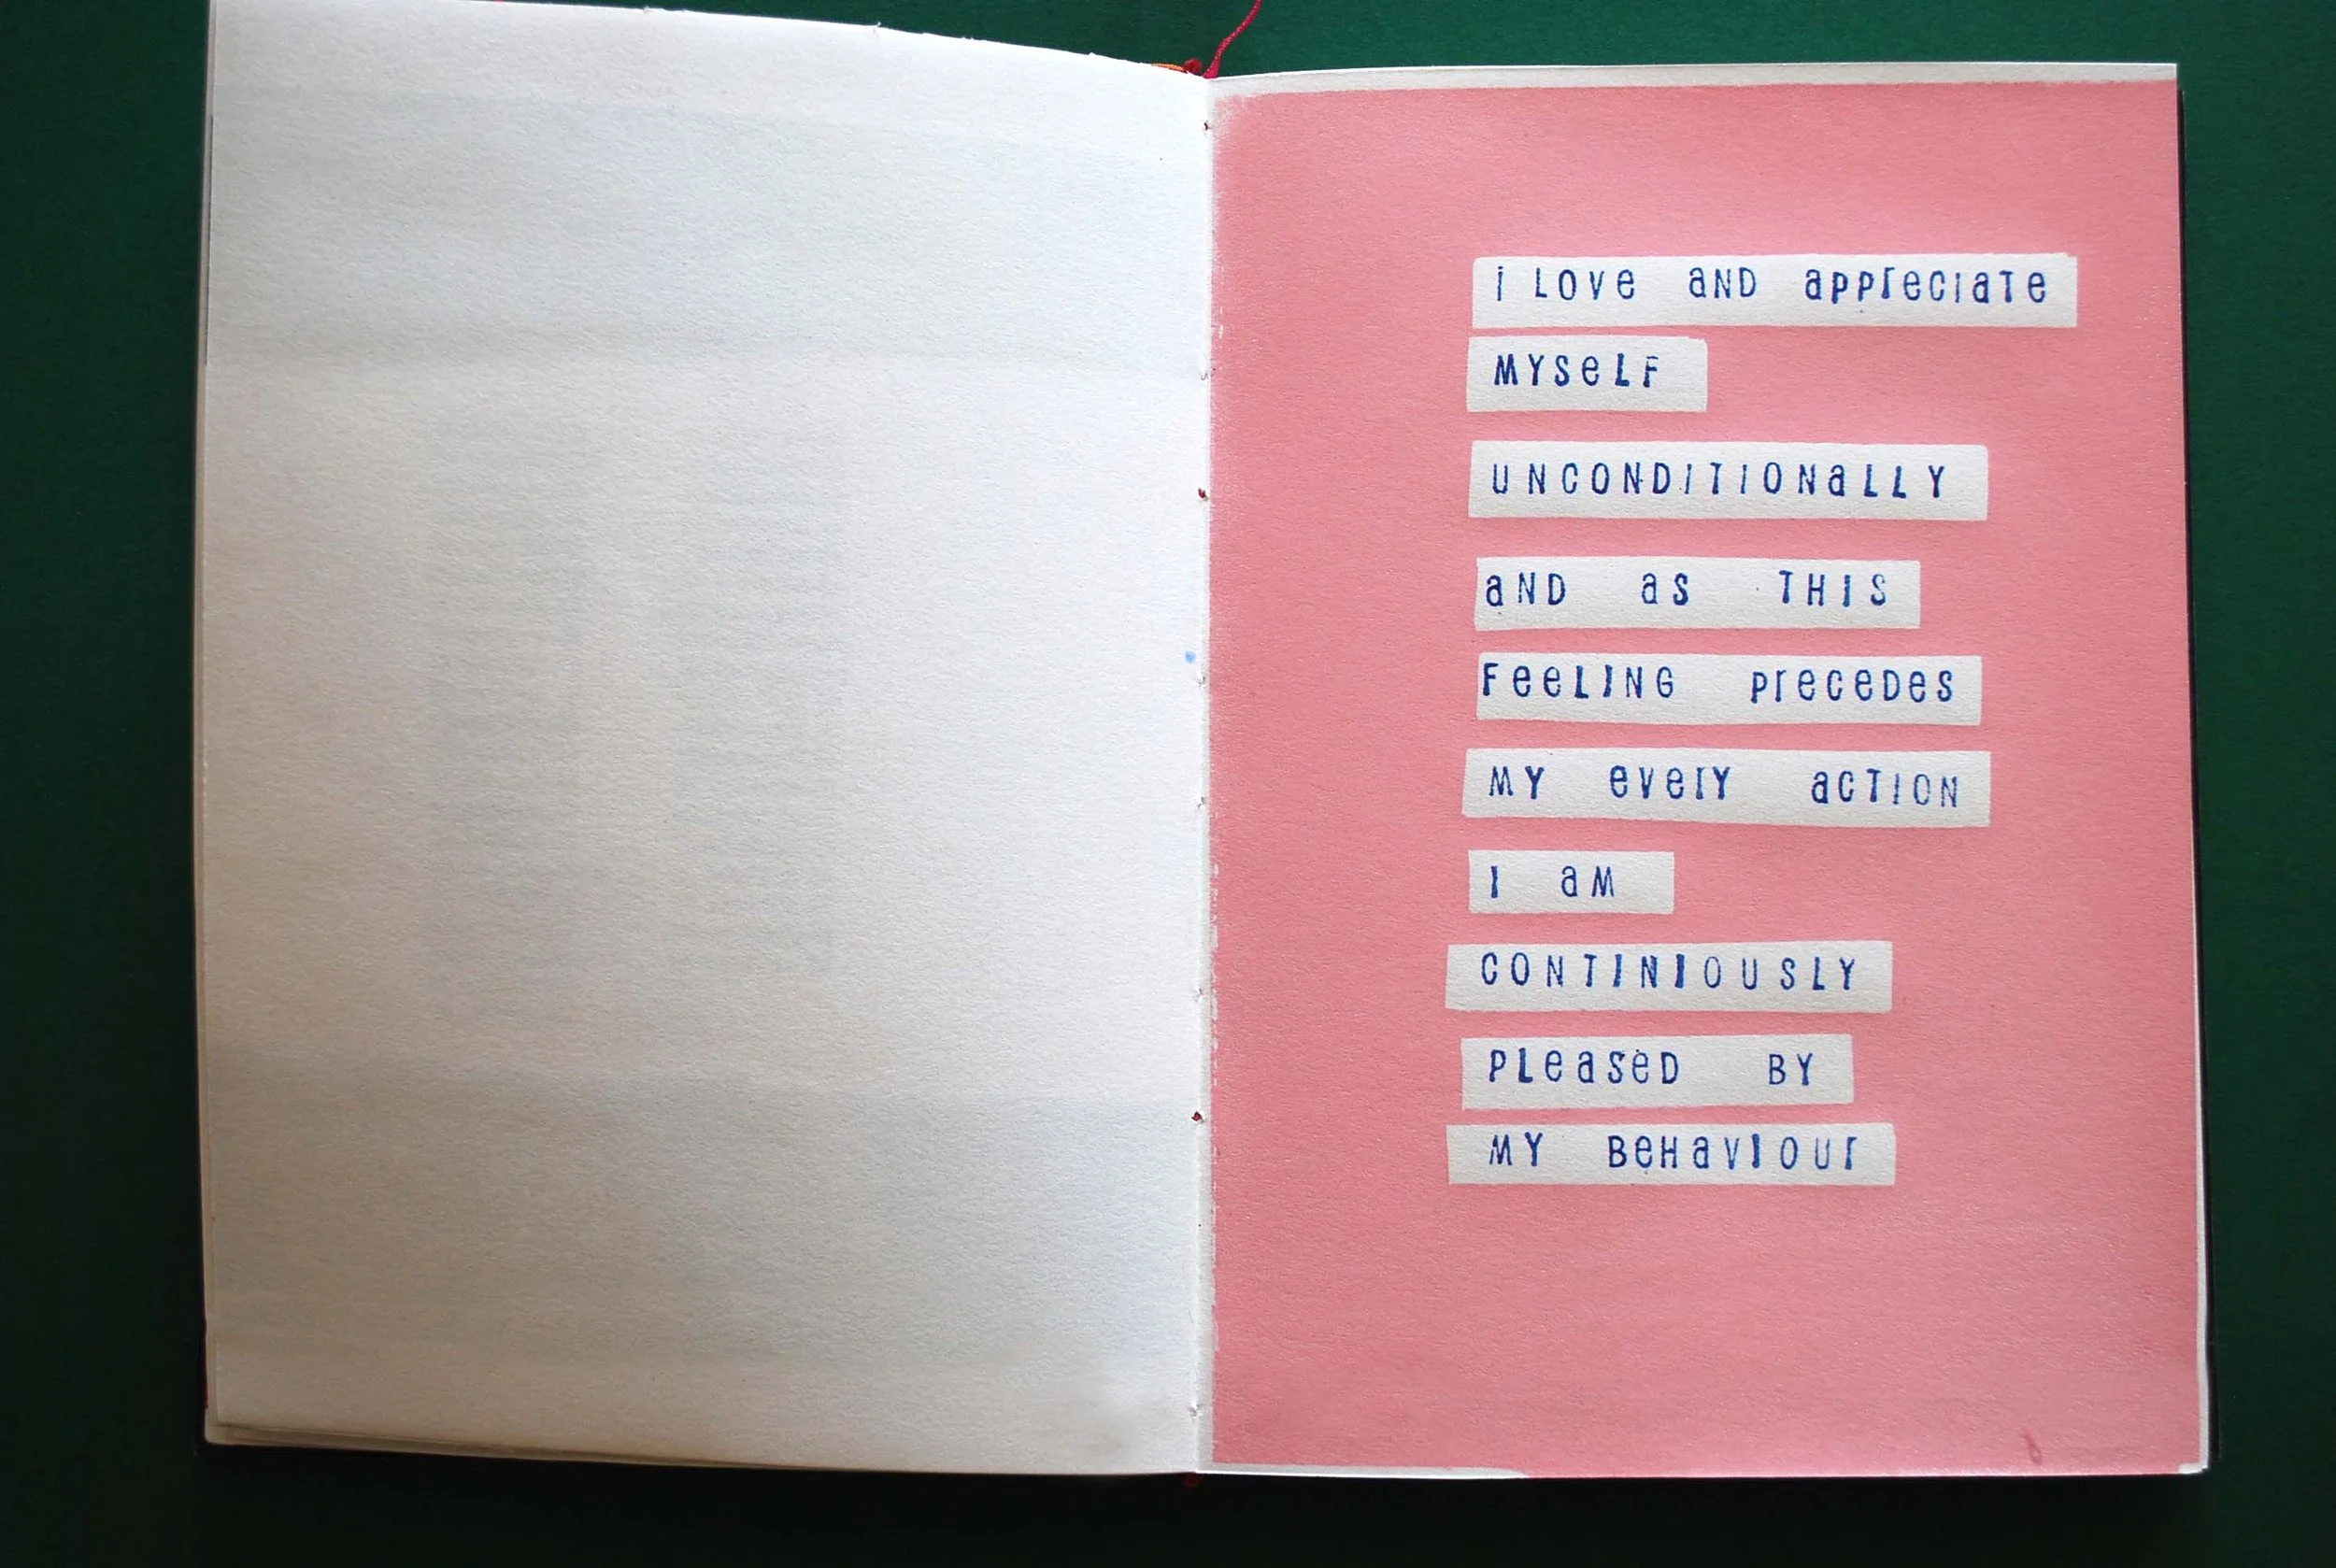 i LOVE aND appreciaTe
MYSELF
UNCONDITIONaLLY
aND as THIS
FeeLING precedes
MY every acTION
I aM
CONTINIOUSLY
PLeaseD BY
MY BeHaVIOUr